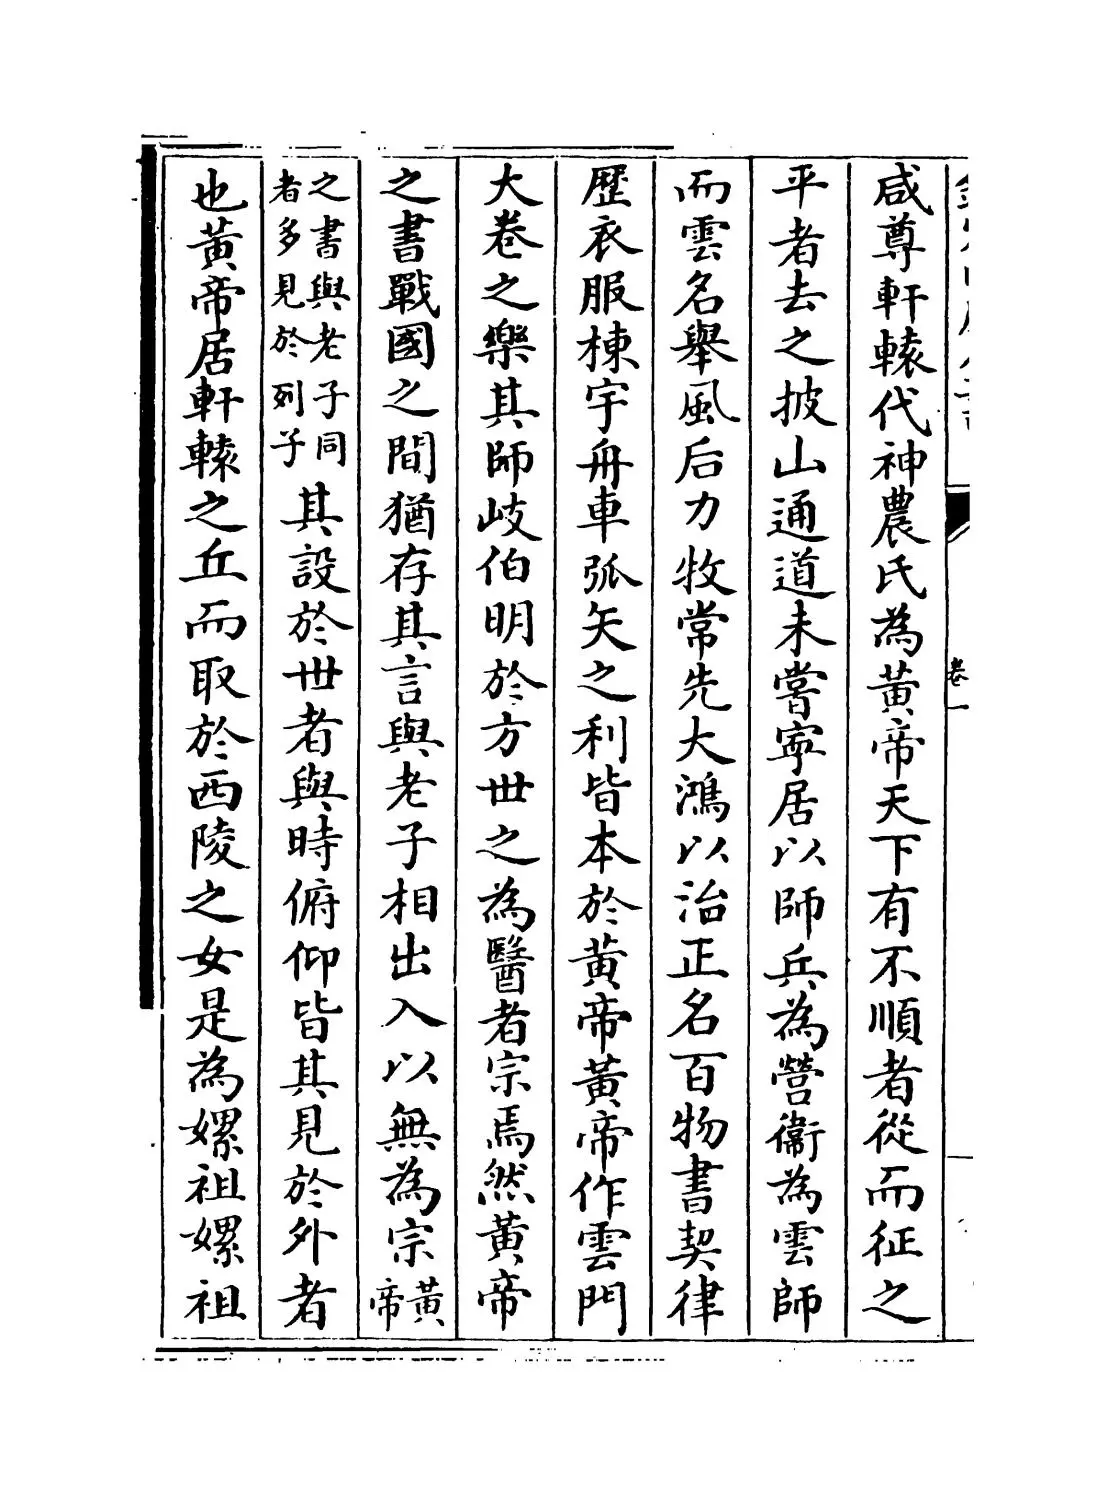 卷一
咸尊軒轅代神農氏為黃帝天下有不順者從而征之
平者去之披山通道未嘗寧居以師兵為營衞為雲師
而雲名舉風后力牧常先大鴻以治正名百物書契律
歴衣服棟宇舟車弧矢之利皆本於黃帝黃帝作雲門
大卷之樂其師岐伯明於方世之為醫者宗焉然黃帝
之書戰國之間猶存其言與老子相出入以無為宗黃帝
之書與老子同者多見於列子其設於世者與時俯仰皆其見於外者
也黃帝居軒轅之丘而取於西陵之女是為嫘祖嫘祖